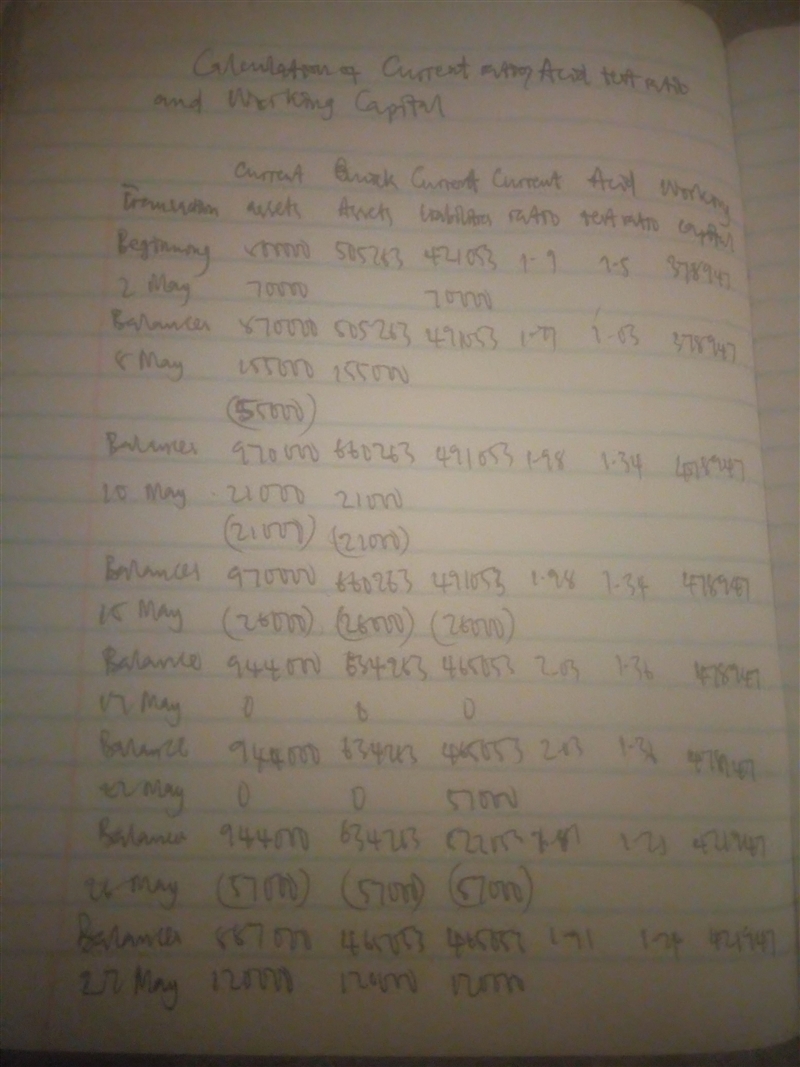 Calculation of Current ratio, Acid test ratio
and Working Capital
Current Quick Current Current Acid Working
Transaction assets Assets liabilities ratio test ratio capital
Beginning 800000 505263 421053 1.9 378947
2 May 70000 70000
Balances 870000 505263 491053 1.77 1.03 378947
8 May 155000 155000
(55000)
Balances 970000 660263 491053 1.98 1.34 478947
10 May 21000 21000
(21000) (21000)
Balances 970000 660263 491053 1.98 1.34 478947
15 May (26000) (26000) (26000)
Balance 944000 634263 465053 2.03 1.36 478947
May 0 0 0
Balance 944000 634263 465053 2.03 478947
22 May 0 0 57000
Balances 944000 634263 522053 421947
26 May (57000) (57000) (57000)
Balances 887000 465053 1.91 1.24 421947
27 May 120000 120000 120000